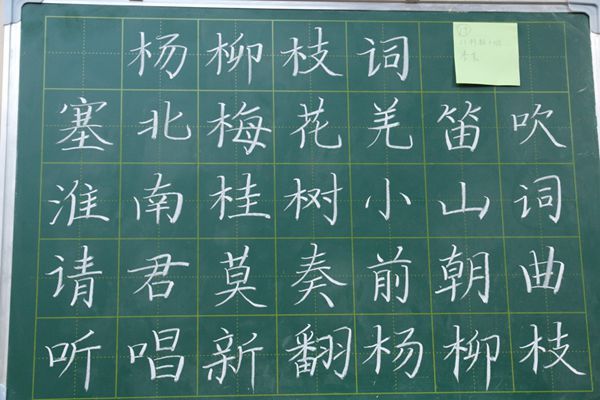 杨柳枝词
塞北梅花羌笛吹
淮南桂树小山词
请君莫奏前朝曲
听唱新翻杨柳枝